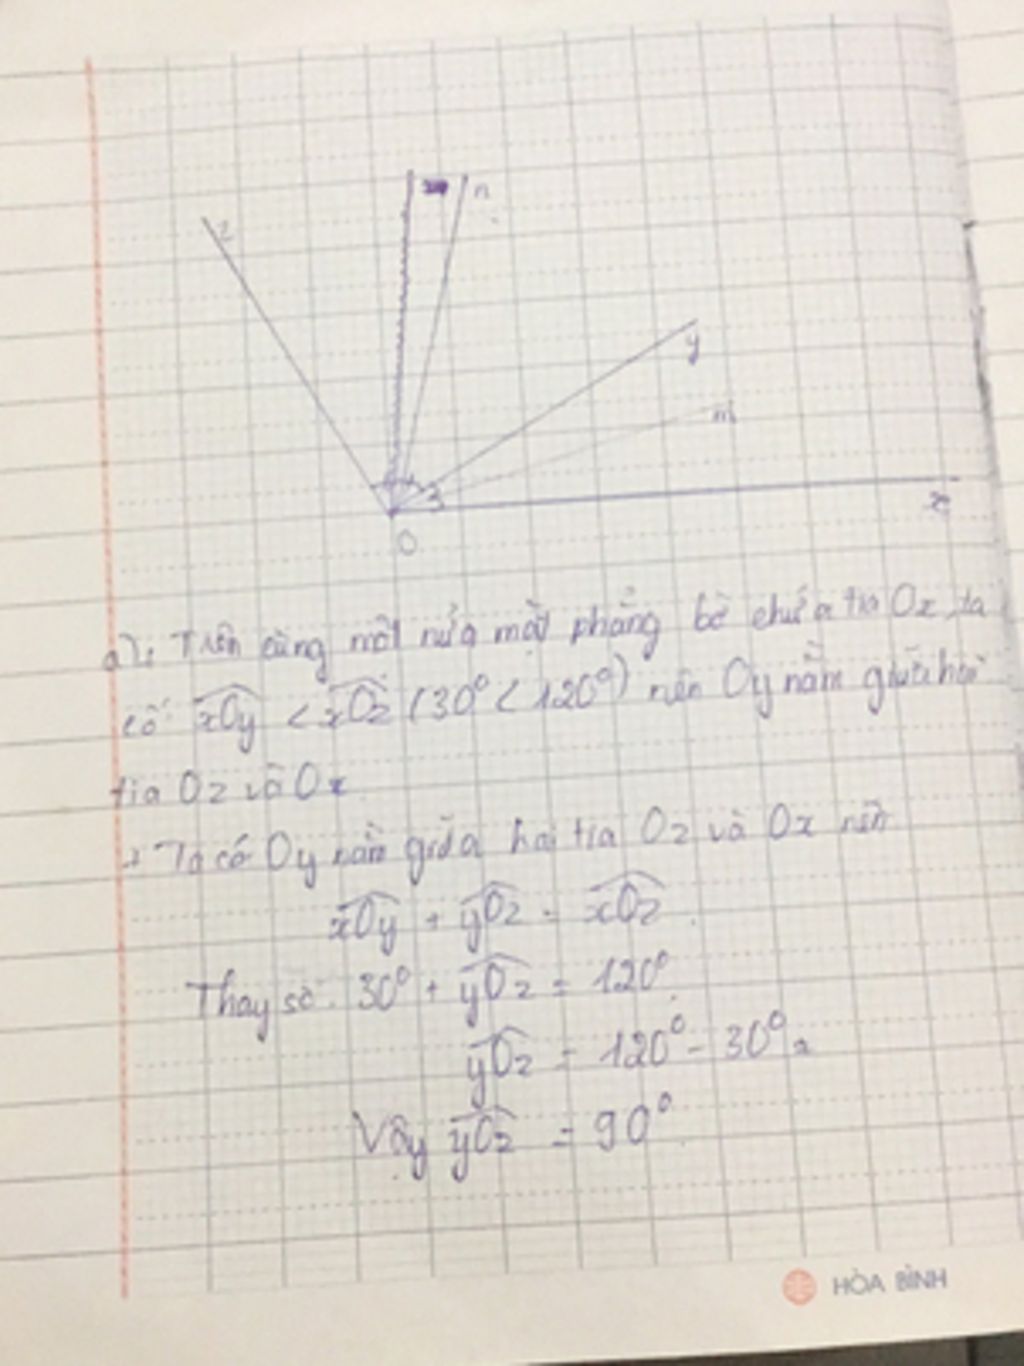 z
n
y
m
x
O
a). Trên cùng một nửa mặt phẳng bờ chứa tia Ox, ta
có xOy < xOz (30° < 120°) nên Oy nằm giữa hai
tia Oz và Ox
Ta có Oy nằm giữa hai tia Oz và Ox nên
xOy + yOz = xOz.
Thay số: 30° + yOz = 120°.
yOz = 120° - 30°
Vậy yOz = 90°.
HÒA BÌNH